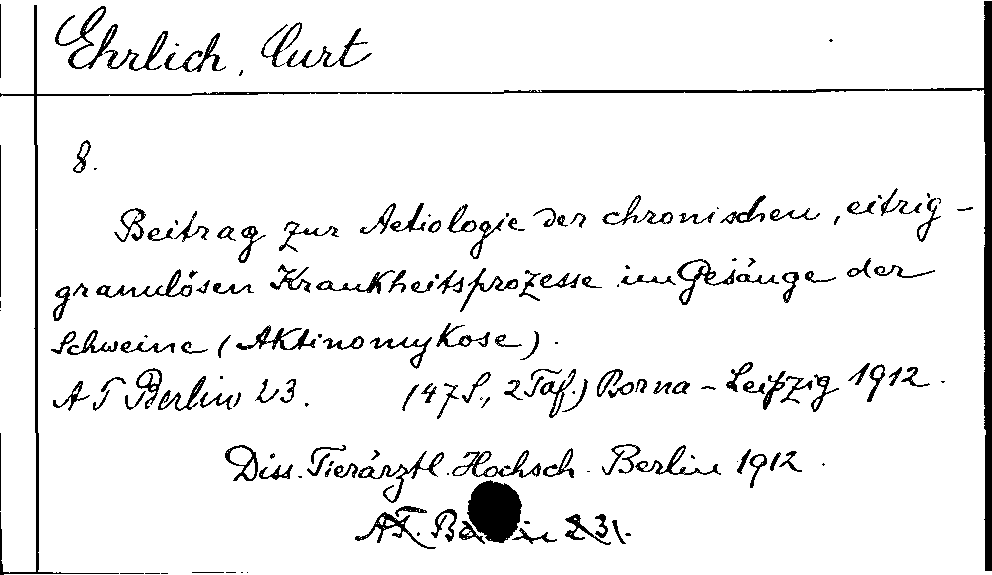 Ehrlich, Curt
8.
Beitrag zur Aetiologie der chronischen, eitrig-
granulösen Krankheitsprozesse im Gesäuge der
Schweine (Aktinomykose).
A T Berlin 23. (47 S., 2 Taf.) Borna-Leipzig 1912.
Diss. Tierärztl. Hochsch. Berlin 1912.